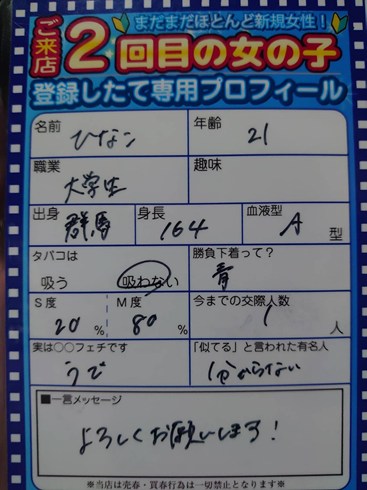 まだまだほとんど新規女性！
ご来店2回目の女の子
登録したて専用プロフィール
名前 ひなこ 年齢 21
職業 大学生 趣味
出身 群馬 身長 164 血液型 A 型
タバコは 吸う 吸わない 勝負下着って？ 青
S度 20 % M度 80 % 今までの交際人数 1 人
実は○○フェチです うで 「似てる」と言われた有名人 分からない
■一言メッセージ
よろしくお願いします！
※当店は売春・買春行為は一切禁止となります※